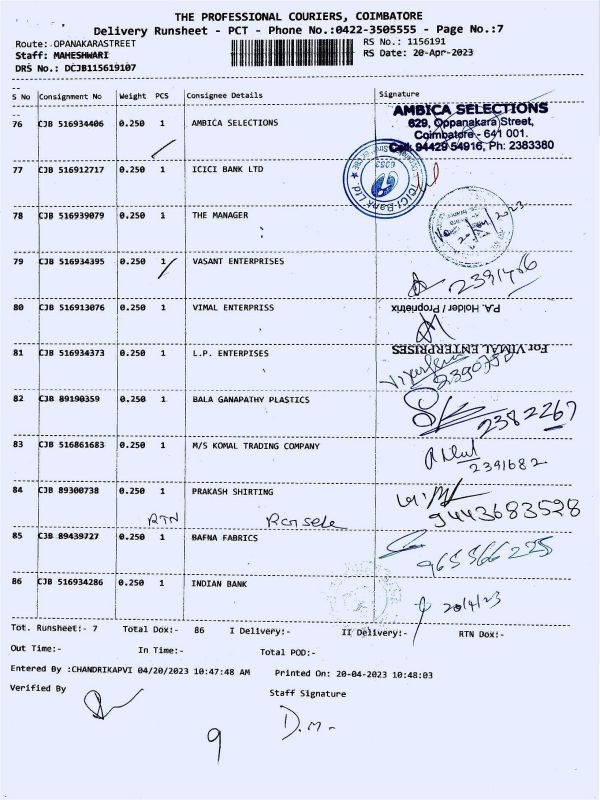 THE PROFESSIONAL COURIERS, COIMBATORE
Delivery Runsheet - PCT - Phone No.:0422-3505555 - Page No.:7
Route: OPANAKARASTREET RS No.: 1156191
Staff: MAHESHWARI RS Date: 20-Apr-2023
DRS No.: DCJB115619107
S No Consignment No Weight PCS Consignee Details Signature
76 CJB 516934406 0.250 1 AMBICA SELECTIONS
AMBICA SELECTIONS
629, Oppanakara Street,
Coimbatore - 641 001.
Cell: 94429 54916, Ph: 2383380
77 CJB 516912717 0.250 1 ICICI BANK LTD
ICICI Bank Ltd
78 CJB 516939079 0.250 1 THE MANAGER
79 CJB 516934395 0.250 1 VASANT ENTERPRISES
80 CJB 516913076 0.250 1 VIMAL ENTERPRISS
P.A. Holder / Proprietrix
For VIMAL ENTERPRISES
81 CJB 516934373 0.250 1 L.P. ENTERPISES
82 CJB 89190359 0.250 1 BALA GANAPATHY PLASTICS
2382267
83 CJB 516861683 0.250 1 M/S KOMAL TRADING COMPANY
2391682
84 CJB 89300738 0.250 1 PRAKASH SHIRTING
9443683528
RTN
85 CJB 89439727 0.250 1 BAFNA FABRICS
86 CJB 516934286 0.250 1 INDIAN BANK
20/4/23
Tot. Runsheet:- 7 Total Dox:- 86 I Delivery:- II Delivery:- RTN Dox:-
Out Time:- In Time:- Total POD:-
Entered By :CHANDRIKAPVI 04/20/2023 10:47:48 AM Printed On: 20-04-2023 10:48:03
Verified By Staff Signature
D.M.-
9